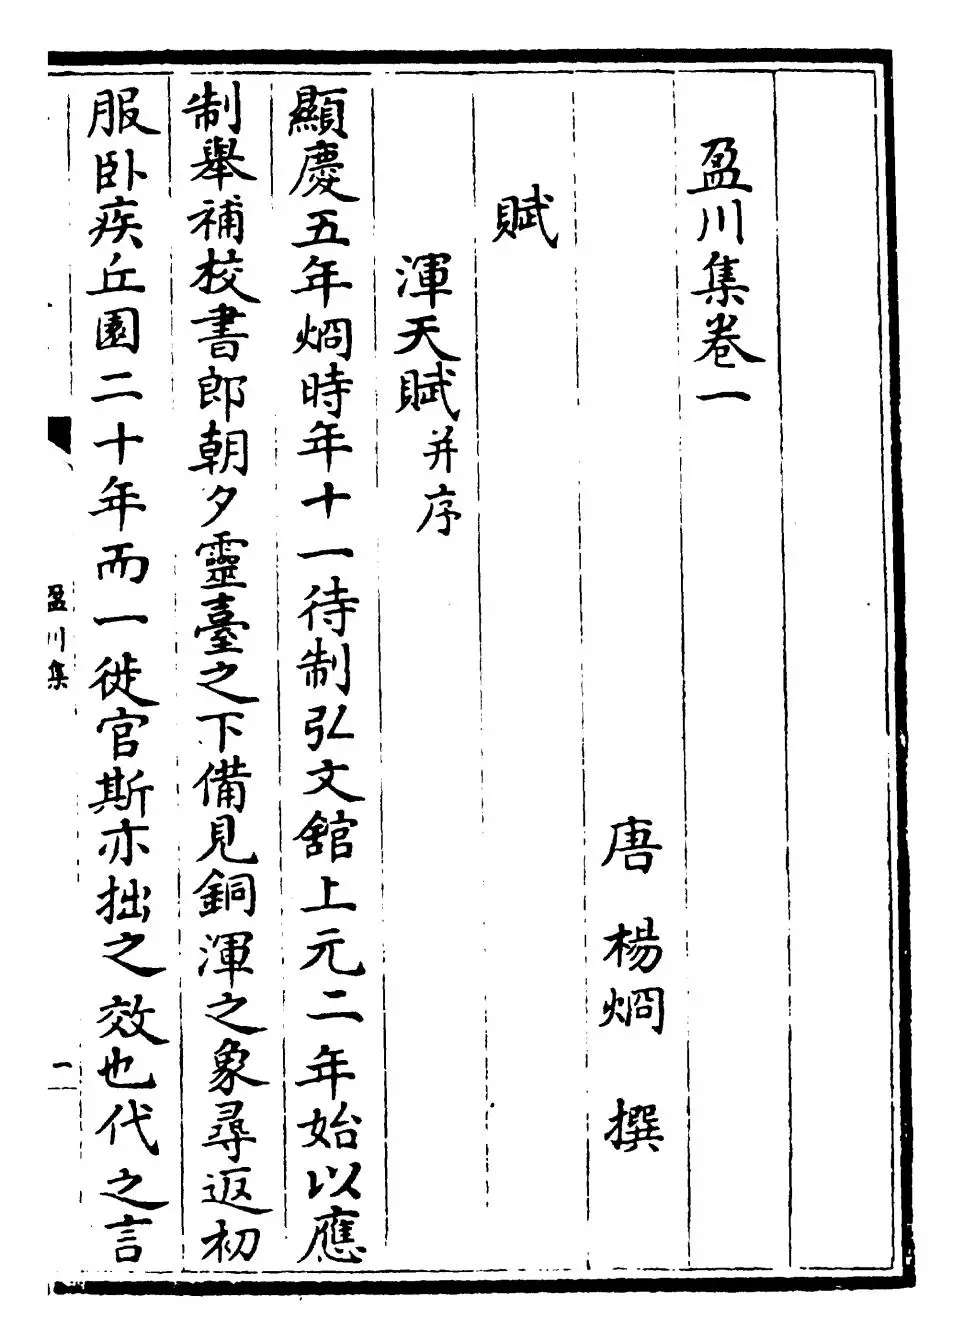 盈川集卷一
唐　楊烱　撰
賦
渾天賦并序
顯慶五年烱時年十一待制弘文舘上元二年始以應
制舉補校書郎朝夕靈臺之下備見銅渾之象尋返初
服卧疾丘園二十年而一徙官斯亦拙之效也代之言
盈川集
一